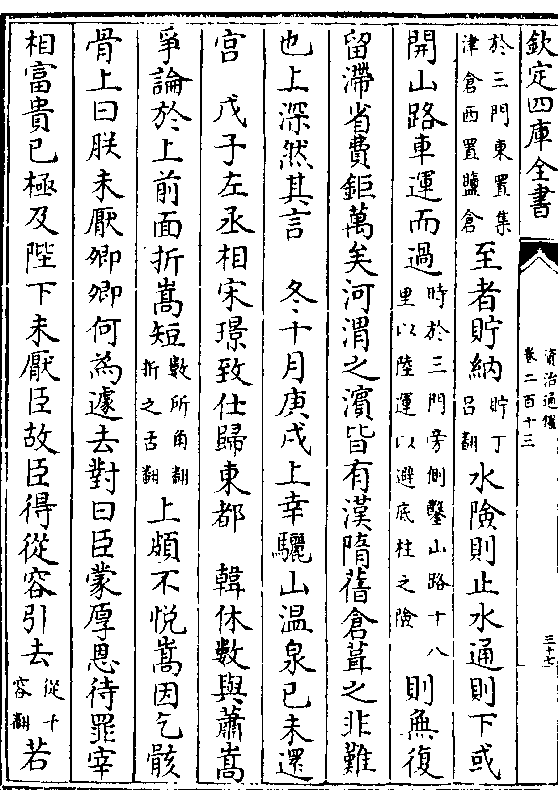 欽定四庫全書
資治通鑑
卷二百十三
三十七
於三門東置集
津倉西置鹽倉
至者貯納
貯丁
呂翻
水險則止水通則下或
開山路車運而過
時於三門旁側鑿山路十八
里以陸運以避底柱之險
則無復
留滯省費鉅萬矣河渭之濱皆有漢隋舊倉葺之非難
也上深然其言 冬十月庚戌上幸驪山温泉己未還
宮 戊子左丞相宋璟致仕歸東都 韓休數與蕭嵩
爭論於上前面折嵩短
數所角翻
折之舌翻
上頗不悦嵩因乞骸
骨上曰朕未厭卿卿何為遽去對曰臣蒙厚恩待罪宰
相富貴已極及陛下未厭臣故臣得從容引去
從千
容翻
若